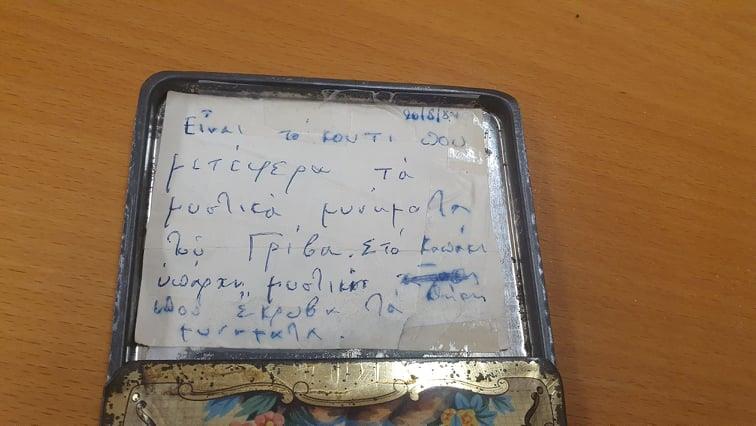 20/8/84
Εἶναι τό κουτί που
μετέφερα τά
μυστικά μυνήματα
τοῦ Γρίβα. Στό καπάκι
ὑπάρχη μυστική θήκη
που ἔκρυβα τά
μυνήματα.